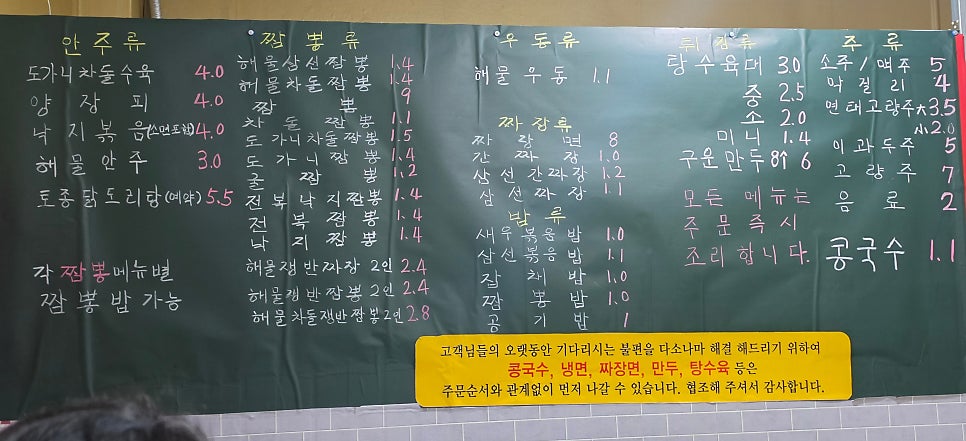 안주류
도가니차돌수육 4.0
양장피 4.0
낙지볶음(소면포함) 4.0
해물안주 3.0
토종닭도리탕(예약) 5.5
각 짬뽕메뉴별
짬뽕밥 가능
짬뽕류
해물삼선짬뽕 1.4
해물차돌짬뽕 1.4
짬뽕 9
차돌짬뽕 1.1
도가니차돌짬뽕 1.5
도가니짬뽕 1.4
굴짬뽕 1.2
전복낙지짬뽕 1.4
전복짬뽕 1.4
낙지짬뽕 1.4
해물쟁반짜장 2인 2.4
해물쟁반짬뽕 2인 2.4
해물차돌쟁반짬뽕 2인 2.8
우동류
해물우동 1.1
짜장류
짜장면 8
간짜장 1.0
삼선간짜장 1.2
삼선짜장 1.1
밥류
새우볶음밥 1.0
삼선볶음밥 1.1
잡채밥 1.0
짬뽕밥 1.0
공기밥 1
튀김류
탕수육 대 3.0
중 2.5
소 2.0
미니 1.4
구운만두 8개 6
모든 메뉴는
주문 즉시
조리합니다.
주류
소주/맥주 5
막걸리 4
연태고량주 大 3.5
小 2.0
이과두주 5
고량주 7
음료 2
콩국수 1.1
고객님들의 오랫동안 기다리시는 불편을 다소나마 해결 해드리기 위하여
콩국수, 냉면, 짜장면, 만두, 탕수육 등은
주문순서와 관계없이 먼저 나갈 수 있습니다. 협조해 주셔서 감사합니다.